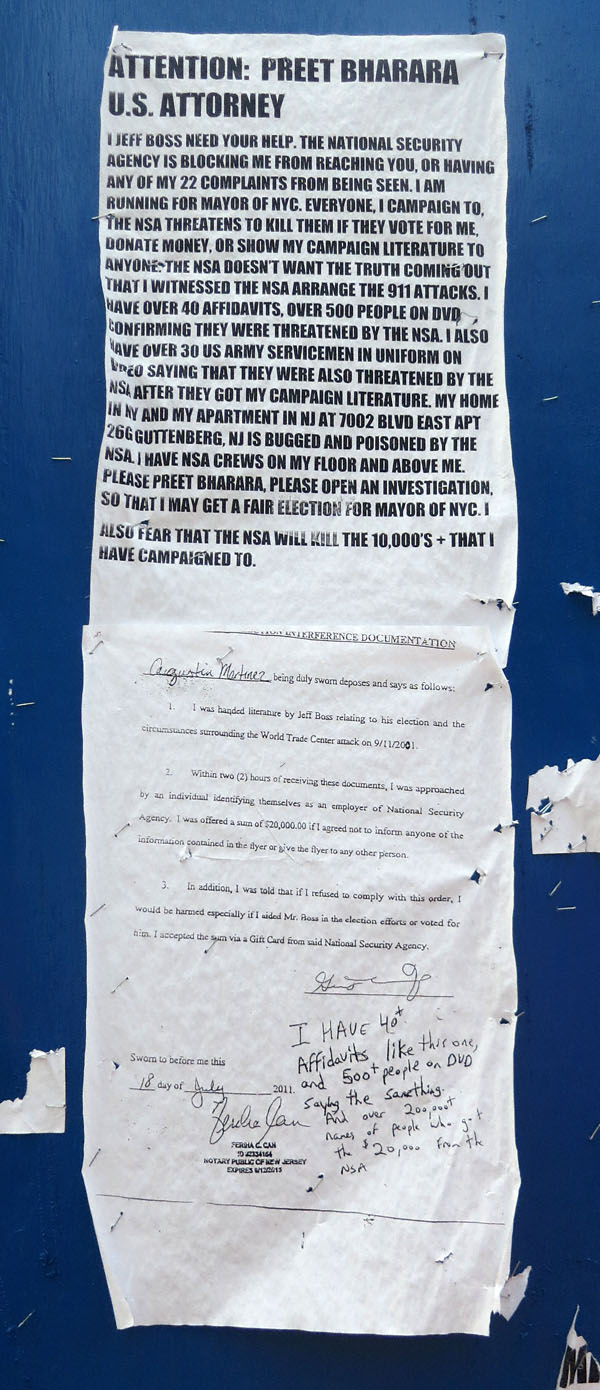 ATTENTION: PREET BHARARA
U.S. ATTORNEY
I JEFF BOSS NEED YOUR HELP. THE NATIONAL SECURITY
AGENCY IS BLOCKING ME FROM REACHING YOU, OR HAVING
ANY OF MY 22 COMPLAINTS FROM BEING SEEN. I AM
RUNNING FOR MAYOR OF NYC. EVERYONE, I CAMPAIGN TO,
THE NSA THREATENS TO KILL THEM IF THEY VOTE FOR ME,
DONATE MONEY, OR SHOW MY CAMPAIGN LITERATURE TO
ANYONE. THE NSA DOESN'T WANT THE TRUTH COMING OUT
THAT I WITNESSED THE NSA ARRANGE THE 911 ATTACKS. I
HAVE OVER 40 AFFIDAVITS, OVER 500 PEOPLE ON DVD
CONFIRMING THEY WERE THREATENED BY THE NSA. I ALSO
HAVE OVER 30 US ARMY SERVICEMEN IN UNIFORM ON
VIDEO SAYING THAT THEY WERE ALSO THREATENED BY THE
NSA AFTER THEY GOT MY CAMPAIGN LITERATURE. MY HOME
IN NY AND MY APARTMENT IN NJ AT 7002 BLVD EAST APT
26G GUTTENBERG, NJ IS BUGGED AND POISONED BY THE
NSA. I HAVE NSA CREWS ON MY FLOOR AND ABOVE ME.
PLEASE PREET BHARARA, PLEASE OPEN AN INVESTIGATION,
SO THAT I MAY GET A FAIR ELECTION FOR MAYOR OF NYC. I
ALSO FEAR THAT THE NSA WILL KILL THE 10,000'S + THAT I
HAVE CAMPAIGNED TO.
INTERFERENCE DOCUMENTATION
Augustin Martinez being duly sworn deposes and says as follows:
1. I was handed literature by Jeff Boss relating to his election and the
circumstances surrounding the World Trade Center attack on 9/11/2001.
2. Within two (2) hours of receiving these documents, I was approached
by an individual identifying themselves as an employer of National Security
Agency. I was offered a sum of $20,000.00 if I agreed not to inform anyone of the
information contained in the flyer or give the flyer to any other person.
3. In addition, I was told that if I refused to comply with this order, I
would be harmed especially if I aided Mr. Boss in the election efforts or voted for
him. I accepted the sum via a Gift Card from said National Security Agency.
I HAVE 40+
Affidavits like this one,
and 500+ people on DVD
saying the samthing.
And over 200,000+
names of people who got
the $20,000 from the
NSA
Sworn to before me this
18 day of July 2011.
FERIHA C. CAN
ID #2334164
NOTARY PUBLIC OF NEW JERSEY
EXPIRES 9/12/2015